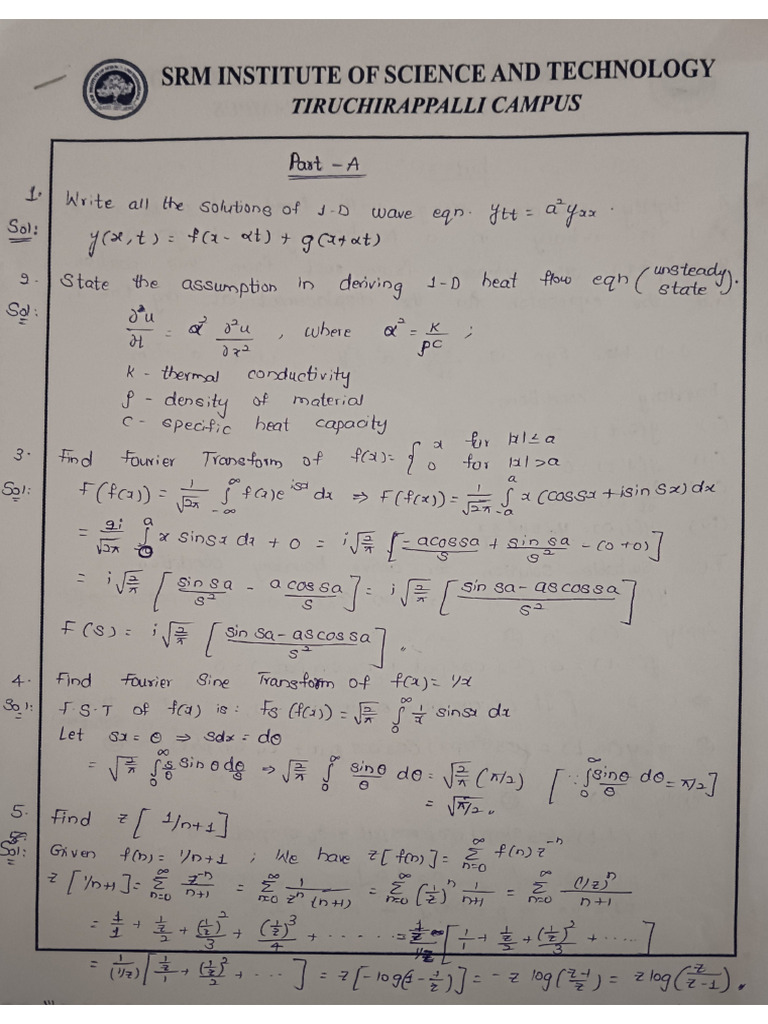 SRM INSTITUTE OF SCIENCE AND TECHNOLOGY
TIRUCHIRAPPALLI CAMPUS
Part - A
1. Write all the solutions of 1-D wave eqn. ytt = a²yxx.
Sol: y(x,t) = f(x-αt) + g(x+αt)
2. State the assumption in deriving 1-D heat flow eqn (unsteady state).
Sol: ∂²u/∂t = α² ∂²u/∂x², where α² = K/ρc ;
K - thermal conductivity
ρ - density of material
c - specific heat capacity
3. Find Fourier Transform of f(x) = { x for |x| ≤ a
0 for |x| > a
Sol: F(f(x)) = 1/√2π ∫_{-∞}^{∞} f(x)e^{isx} dx ⇒ F(f(x)) = 1/√2π ∫_{-a}^{a} x(cossx + isin sx) dx
= 2i/√2π ∫_{0}^{a} x sinsx dx + 0 = i√2/π [-acossa/s + sin sa/s² - (0+0)]
= i√2/π [sin sa/s² - a cos sa/s] = i√2/π [sin sa - as cossa/s²]
F(s) = i√2/π [sin sa - as cos sa/s²].
4. Find Fourier Sine Transform of f(x) = 1/x
Sol: F.S.T of f(x) is : Fs(f(x)) = √2/π ∫_{0}^{∞} 1/x sinsx dx
Let sx = θ ⇒ sdx = dθ
= √2/π ∫_{0}^{∞} s/θ sin θ dθ/s ⇒ √2/π ∫_{0}^{∞} sinθ/θ dθ = √2/π (π/2) [∵ ∫_{0}^{∞} sinθ/θ dθ = π/2]
= √π/2.
5. Find z[1/n+1]
Sol: Given f(n) = 1/n+1 ; We have z[f(n)] = ∑_{n=0}^{∞} f(n) z^{-n}
z[1/n+1] = ∑_{n=0}^{∞} z^{-n}/n+1 = ∑_{n=0}^{∞} 1/z^n (n+1) = ∑_{n=0}^{∞} (1/z)^n 1/n+1 = ∑_{n=0}^{∞} (1/z)^n/n+1
= 1/1 + (1/z)/2 + (1/z)²/3 + (1/z)³/4 + ...... = 1/(1/z) [1/1 + (1/z)/2 + (1/z)²/3 + .....]
= 1/(1/z) [(1/z)/1 + (1/z)²/2 + ....] = z[-log(1 - 1/z)] = -z log(z-1/z) = z log(z/z-1).